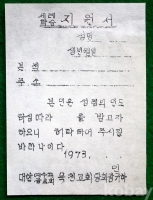 세례
학습 지원서
성명
생년월일
본 적
주 소
본인은 성령의 인도
하심 따라 을 받고자
하오니 허락하여 주시길
바라나이다
1973. .
인
대한 목천교회